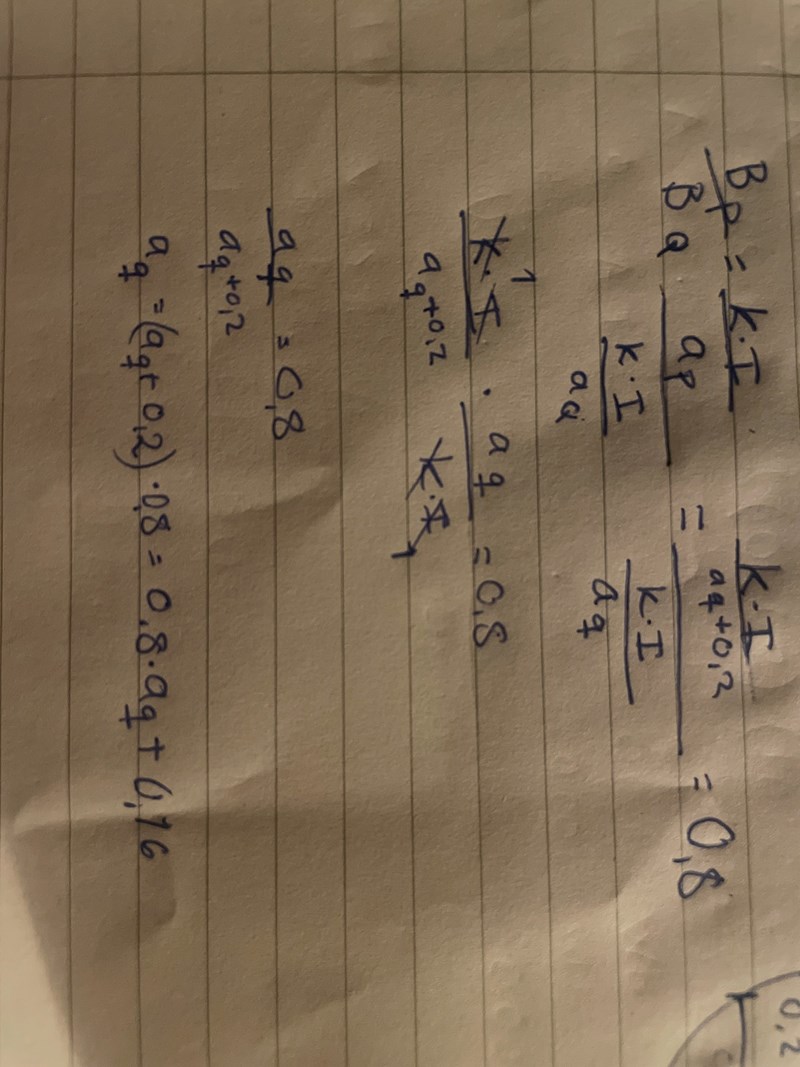 B_P / B_Q = (k·I / a_P) / (k·I / a_Q) = (k·I / a_q+0,2) / (k·I / a_q) = 0,8
k·I 1 / a_q+0,2 · a_q / k·I 1 = 0,8
a_q / a_q+0,2 = 0,8
a_q = (a_q+0,2)·0,8 = 0,8·a_q + 0,16
0,2